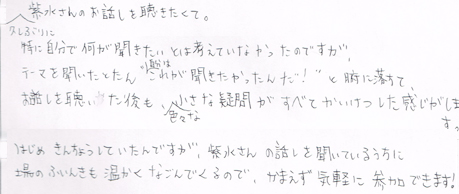 紫水さんのお話しを聴きたくて。
久しぶりに
特に自分で何が聞きたいとは考えていなかったのですが、
テーマを聞いたとたん "これが聞きたかったんだ!" と腑に落ちて、
お話しを聴いた後も、小さな疑問がすべてかいけつした感じがします。
色々な
はじめ きんちょうしていたんですが、紫水さん の話しを聞いているうちに
場のふいんきも 温かく なごんでくるので、かまえず 気軽に 参加できます!